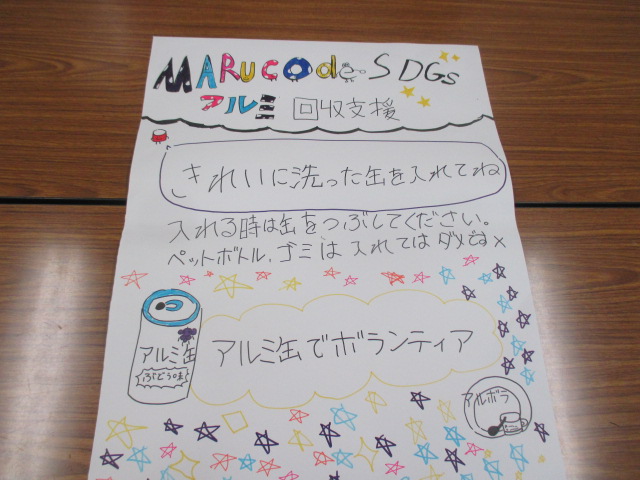 MARUCOde-SDGs
アルミ 回収支援
きれいに洗った缶を入れてね
入れる時は缶をつぶしてください。
ペットボトル、ゴミは入れてはダメです×
アルミ缶
ぶどう味
アルミ缶でボランティア
アルボラ